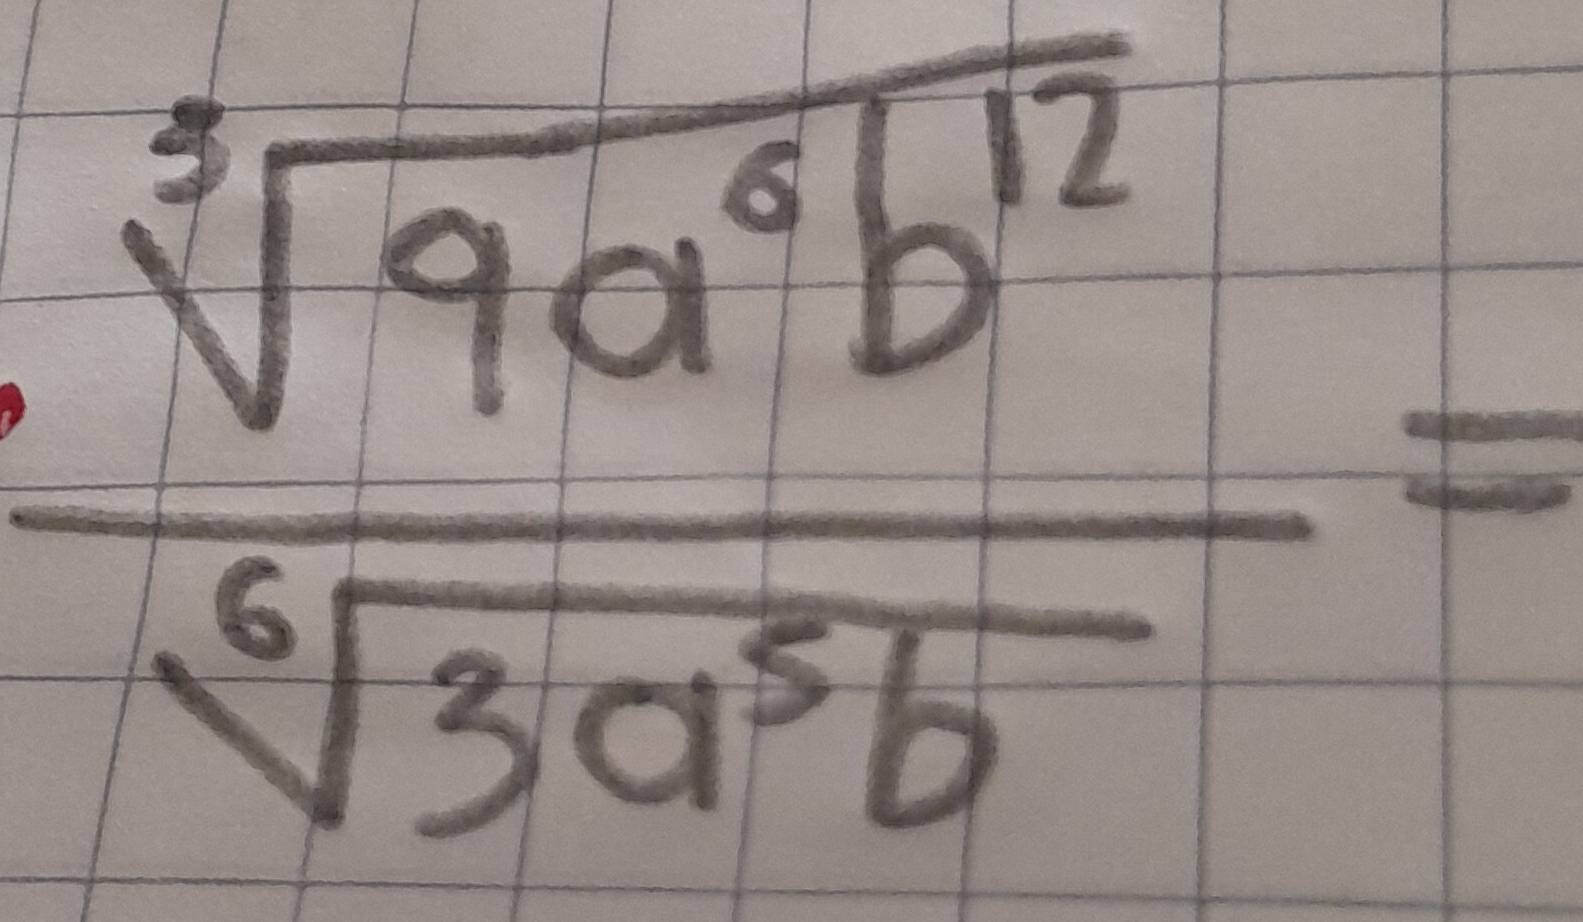 ∛(9a⁶b¹²)
―――――― =
⁶√(3a⁵b)